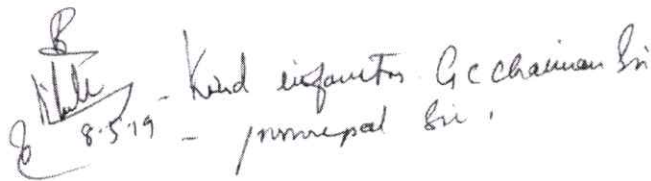 - Kind information GC Chairman Sir
8.5.19 - principal Sir.